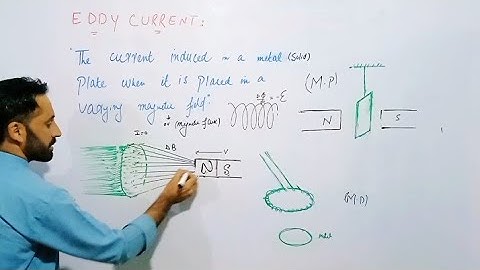 EDDY CURRENT:
"The current induced in a metal (Solid)
plate when it is placed in a
varying magnetic field"
or (magnetic flux)
(M.P)
N S
I=0
ΔB
V
N S
(M.D)